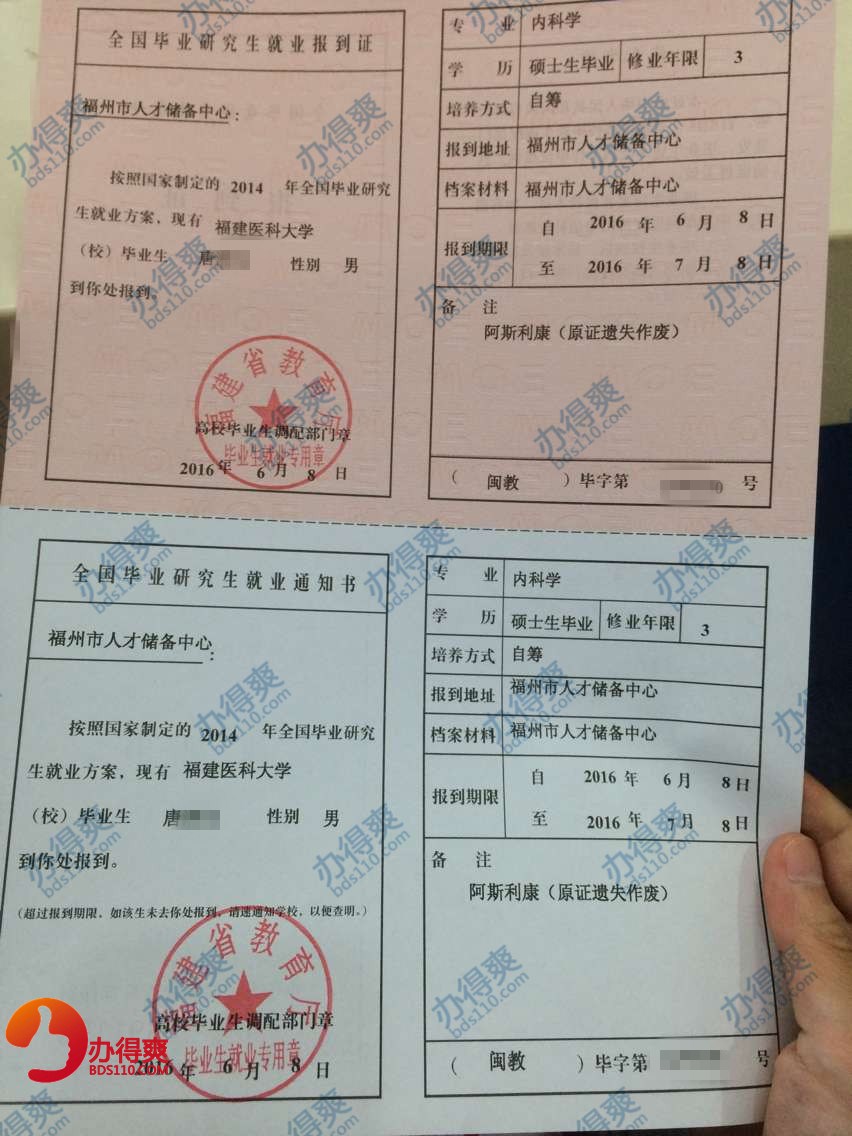 全国毕业研究生就业报到证
福州市人才储备中心：
按照国家制定的 2014 年全国毕业研究
生就业方案，现有 福建医科大学
（校）毕业生 唐 性别 男
到你处报到。
福建省教育厅
高校毕业生调配部门章
毕业生就业专用章
2016年 6月 8日
专业 内科学
学历 硕士生毕业 修业年限 3
培养方式 自筹
报到地址 福州市人才储备中心
档案材料 福州市人才储备中心
报到期限 自 2016 年 6 月 8 日
至 2016 年 7 月 8 日
备注
阿斯利康（原证遗失作废）
（ 闽教 ）毕字第 0 号
全国毕业研究生就业通知书
福州市人才储备中心：
按照国家制定的 2014 年全国毕业研究
生就业方案，现有 福建医科大学
（校）毕业生 唐 性别 男
到你处报到。
（超过报到期限，如该生未去你处报到，请速通知学校，以便查明。）
福建省教育厅
高校毕业生调配部门章
毕业生就业专用章
2016年 6月 8日
专业 内科学
学历 硕士生毕业 修业年限 3
培养方式 自筹
报到地址 福州市人才储备中心
档案材料 福州市人才储备中心
报到期限 自 2016 年 6 月 8 日
至 2016 年 7 月 8 日
备注
阿斯利康（原证遗失作废）
（ 闽教 ）毕字第 号
办得爽
BDS110.COM
办得爽
bds110.com